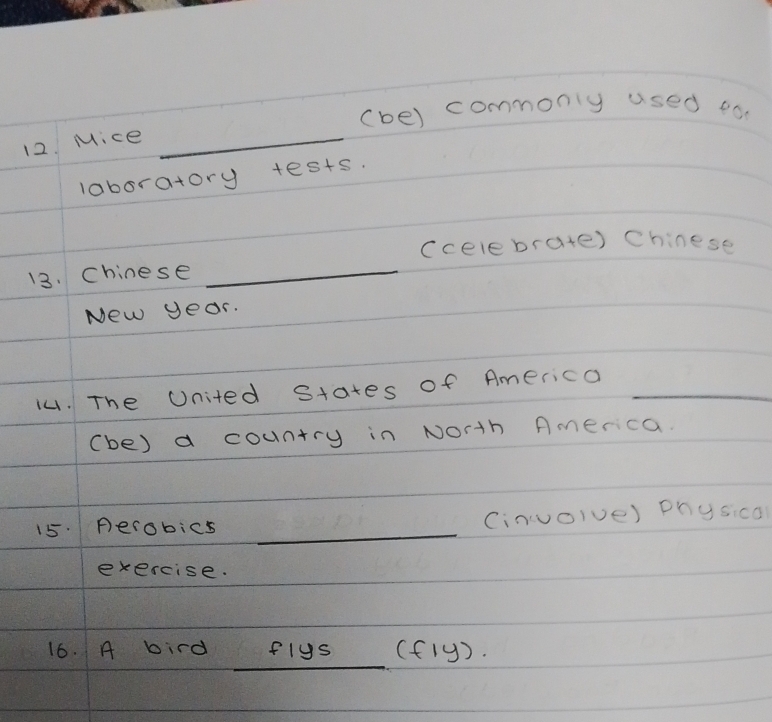 12. Mice ________ (be) commonly used for
laboratory tests.
13. Chinese ________ (celebrate) Chinese
New year.
14. The United States of America ________
(be) a country in North America.
15. Aerobics ________ (involve) physical
exercise.
16. A bird flys (fly).